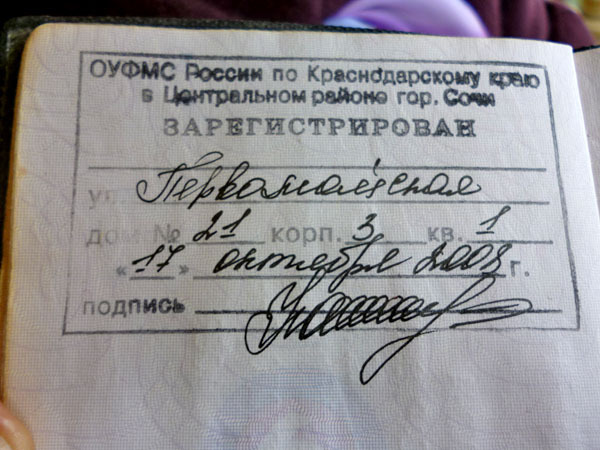 ОУФМС России по Краснодарскому краю
в Центральном районе гор. Сочи
ЗАРЕГИСТРИРОВАН
ул. Первомайская
дом № 21 корп. 3 кв. 1
«17» октября 2008 г.
подпись